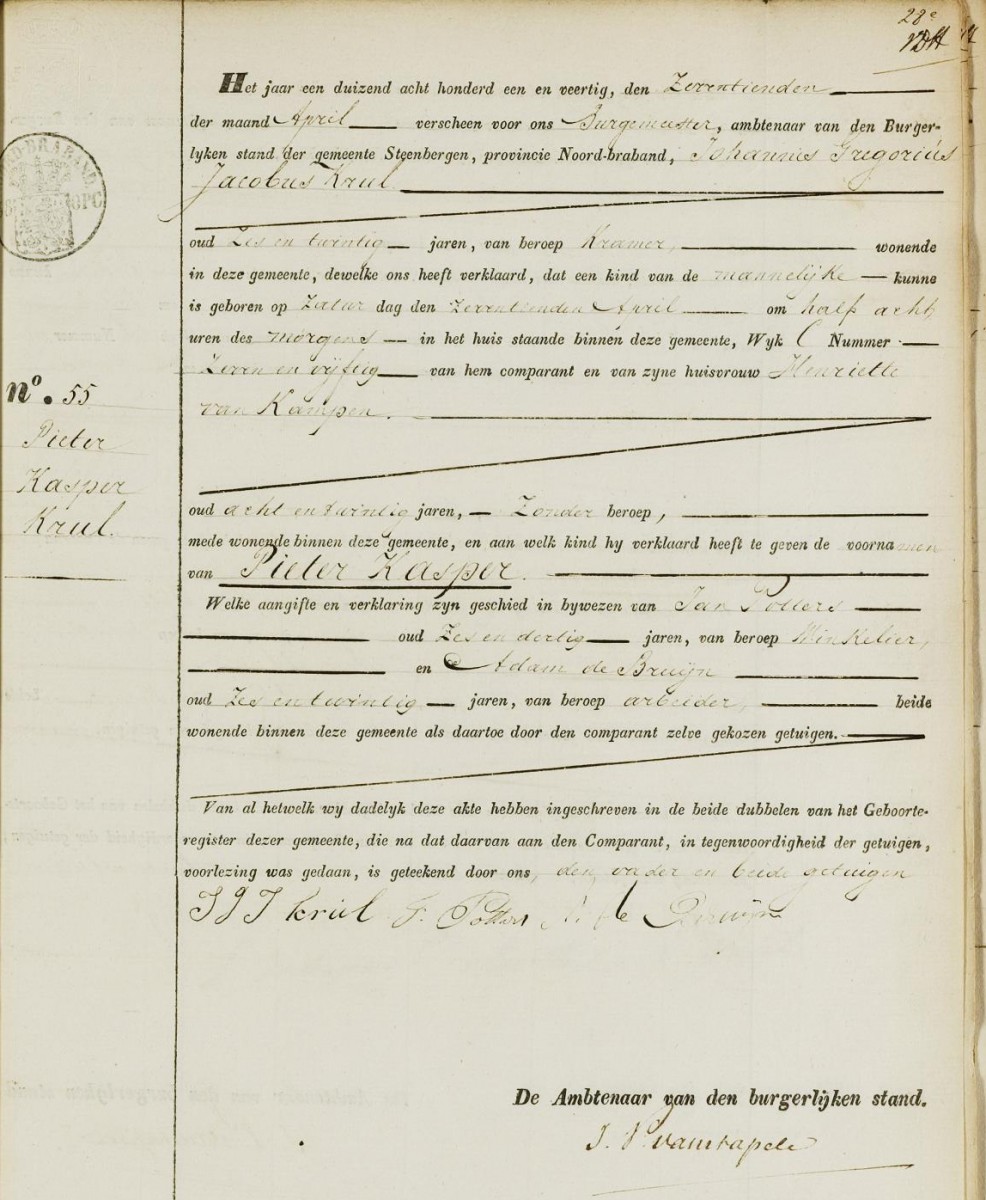 28e
VDH
Het jaar een duizend acht honderd een en veertig, den Zeventienden
der maand April verscheen voor ons Burgemeester, ambtenaar van den Burger-
lyken stand der gemeente Steenbergen, provincie Noord-braband, Johannes Gregorius
Jacobus Krul
oud Zes en twintig jaren, van beroep Kramer, wonende
in deze gemeente, dewelke ons heeft verklaard, dat een kind van de mannelijke kunne
is geboren op Zatur dag den Zeventienden April om half acht
uren des morgens in het huis staande binnen deze gemeente, Wyk C Nummer
Zeven en vijftig van hem comparant en van zyne huisvrouw Henriette
van Kampen.
No. 55
Pieter
Kasper
Krul.
oud acht en twintig jaren, Zonder beroep,
mede wonende binnen deze gemeente, en aan welk kind hy verklaard heeft te geven de voornamen
van Pieter Kasper.
Welke aangifte en verklaring zyn geschied in bywezen van Jan Potters
oud Zes en dertig jaren, van beroep Winkelier,
en Adam de Bruijn
oud Zes en twintig jaren, van beroep arbeider, beide
wonende binnen deze gemeente als daartoe door den comparant zelve gekozen getuigen.
Van al hetwelk wy dadelyk deze akte hebben ingeschreven in de beide dubbelen van het Geboorte-
register dezer gemeente, die na dat daarvan aan den Comparant, in tegenwoordigheid der getuigen,
voorlezing was gedaan, is geteekend door ons, den vader en beide getuigen
J G J Krul J. Potters A. de Bruijn
De Ambtenaar van den burgerlyken stand.